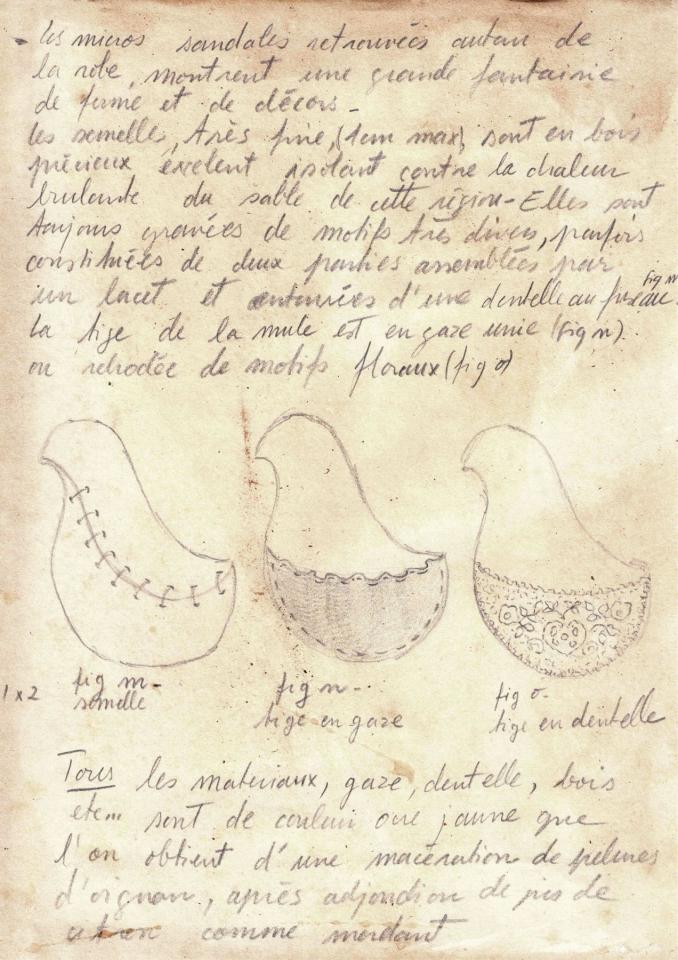 - les micros sandales retrouvées autour de
la robe, montrent une grande fantaisie
de forme et de décors -
les semelles, très fine, (1cm max), sont en bois
précieux exelent isolant contre la chaleur
brulante du sable de cette région - Elles sont
toujours gravées de motifs très divers, parfois
constituées de deux parties assemblées par
un lacet et entourées d'une dentelle au fuseau. fig m
la tige de la mule est en gaze unie (fig n).
ou rebrodée de motifs floraux (fig o)
1 x 2
fig m -
semelle
fig n - -
tige en gaze
fig o -
tige en dentelle
Tous les materiaux, gaze, dentelle, bois
etc... sont de couleur ocre jaune que
l'on obtient d'une macération de pelures
d'oignon, après adjonction de jus de
citron comme mordant